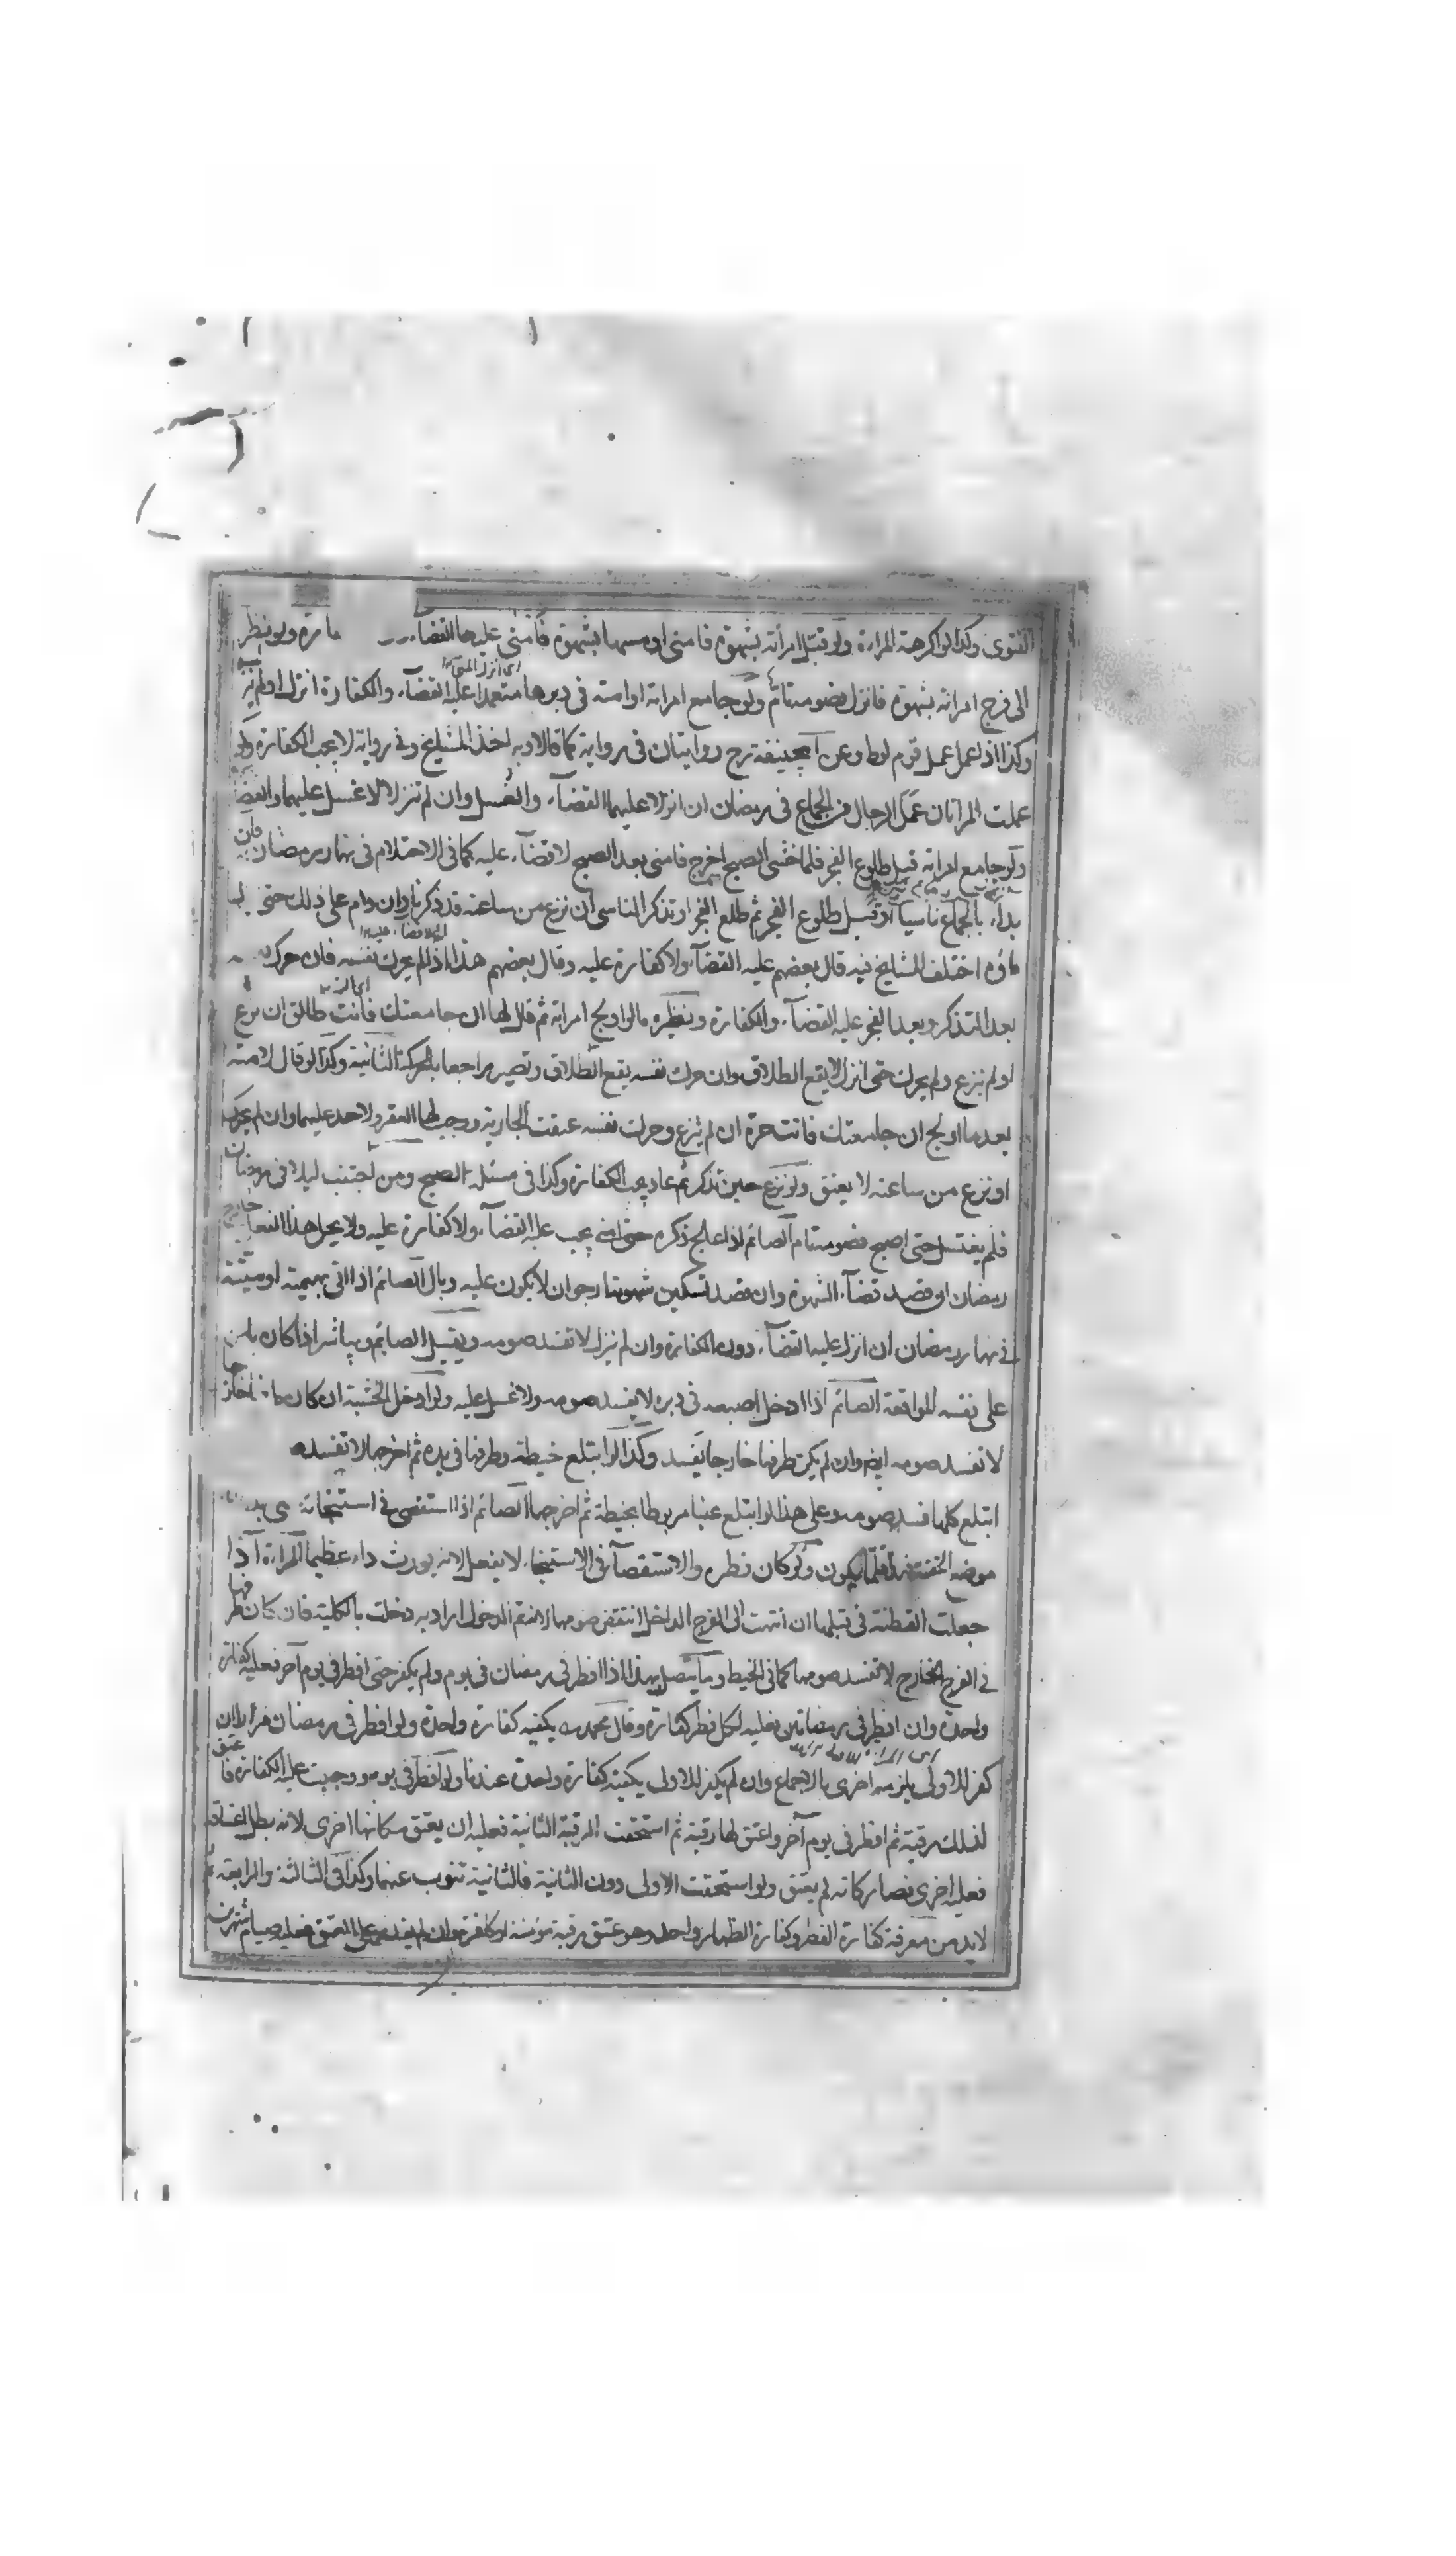 الفتوى وكذا لو اكرهته المراءة ولو قبّل امرأته بشهوة فامنى او مسها بشهوة فامنى عليه القضاء ولو نظر
الى فرج امراته بشهوة فانزل فصومه تام ولو جامع امراته او امته في دبرها متعمدا عليه القضآء والكفارة انزل او لم ينزل
وكذا اذا عمل عمل قوم لوط وعن ابيحنيفة رح روايتان في رواية كما قالا وبه اخذ المشايخ وفي رواية لا يجب الكفارة ولو
عملت المراتان عمل الرجال من الجماع في رمضان ان انزلا عليهما القضآء والغسل وان لم تنزلا لا غسل عليهما ولا قضآء
ولو جامع امراته قبل طلوع الفجر فلما خشى الصبح اخرج فامنى بعد الصبح لا قضآء عليه كما في الاحتلام في نهار رمضان فان
بدأ بالجماع ناسيا او قبل طلوع الفجر ثم طلع الفجر او تذكر الناسي ان نزع من ساعته قد ذكرنا وان دام على ذلك حتى
ماؤه اختلف المشايخ فيه قال بعضهم عليه القضآء ولا كفارة عليه وقال بعضهم هذا اذا لم يحرك نفسه فان حرك
بعد التذكر وبعد الفجر عليه القضآء والكفارة ونظيره ما لو اولج امراته ثم قال لها ان جامعتك فانت طالق ان نزع
او لم ينزع ولم يحرك حتى انزل لا يقع الطلاق وان حرك نفسه يقع الطلاق وتصير مراجعا بالحركة الثانية وكذا لو قال لامته
بعد ما اولج ان جامعتك فانت حرة ان لم ينزع وحرك نفسه عتقت الجارية ووجب لها العقر ولا حد عليهما وان لم يحرك
او نزع من ساعته لا يعتق ولو نزع حين تذكر ثم عاد يجب الكفارة وكذا في مسئلة الصبح ومن اجتنب ليلا في رمضان
فلم يغتسل حتى اصبح فصومه تام الصائم اذا عالج ذكره حتى امنى يجب عليه القضآء ولا كفارة عليه ولا يحل هذا الفعل خارج
رمضان ان قصد قضآء الشهوة وان قصد تسكين شهوته ارجو ان لا يكون عليه وبال الصائم اذا اتى بهيمة او ميتة
في نهار رمضان ان انزل عليه القضآء دون الكفارة وان لم ينزل لا تفسد صومه ويقبل الصائم ويباشر اذا كان يامن
على نفسه المواقعة الصائم اذا ادخل اصبعه في دبره لا يفسد صومه ولا غسل عليه ولو ادخل الخشبة ان كان خارجا
لا تفسد صومه ايضا وان لم يكن طرفها خارجا يفسد وكذا لو ابتلع خيطة وطرفها في يده ثم اخرجها لا تفسد
ابتلع كلها فسد صومه وعلى هذا لو ابتلع عنبا مربوطا بخيطة ثم اخرجها الصائم اذا استقصى في استنجائه
موضع الحقنة فهذا قلما يكون ولو كان فطره والاستقصآء في الاستنجاء لا يفعل لانه يورث داء عظيما المراءة اذا
جعلت القطنة في قبلها ان انتهت الى الفرج الداخل انتقض صومها لانه تم الدخول اراد به دخلت بالكلية فان كان طرفها
في الفرج الخارج لا تفسد صومها كما في الخيط وما يتصل بهذا اذا افطر في رمضان في يوم ولم يكفر حتى افطر في يوم آخر فعليه كفارة
واحدة وان افطر في رمضانين فعليه لكل فطر كفارة وقال محمد يكفيه كفارة واحدة ولو افطر في رمضان مرارا ان
كفر للاولى يلزمه اخرى بالاجماع وان لم يكفر للاولى يكفيه كفارة واحدة عندنا ولو افطر في يوم ووجبت عليه الكفارة فاعتق
لذلك رقبة ثم افطر في يوم آخر واعتق لها رقبة ثم استحقت الرقبة الثانية فعليه ان يعتق مكانها اخرى لانه بطل اعتاقه
فعليه اخرى فصار كانه لم يعتق ولو استحقت الاولى دون الثانية فالثانية تنوب عنهما وكذا في الثالثة والرابعة ثم
لابد من معرفة كفارة الفطر وكفارة الظهار واحد وهو عتق رقبة مؤمنة او كافرة وان لم يقدر على العتق فعليه صيام شهرين